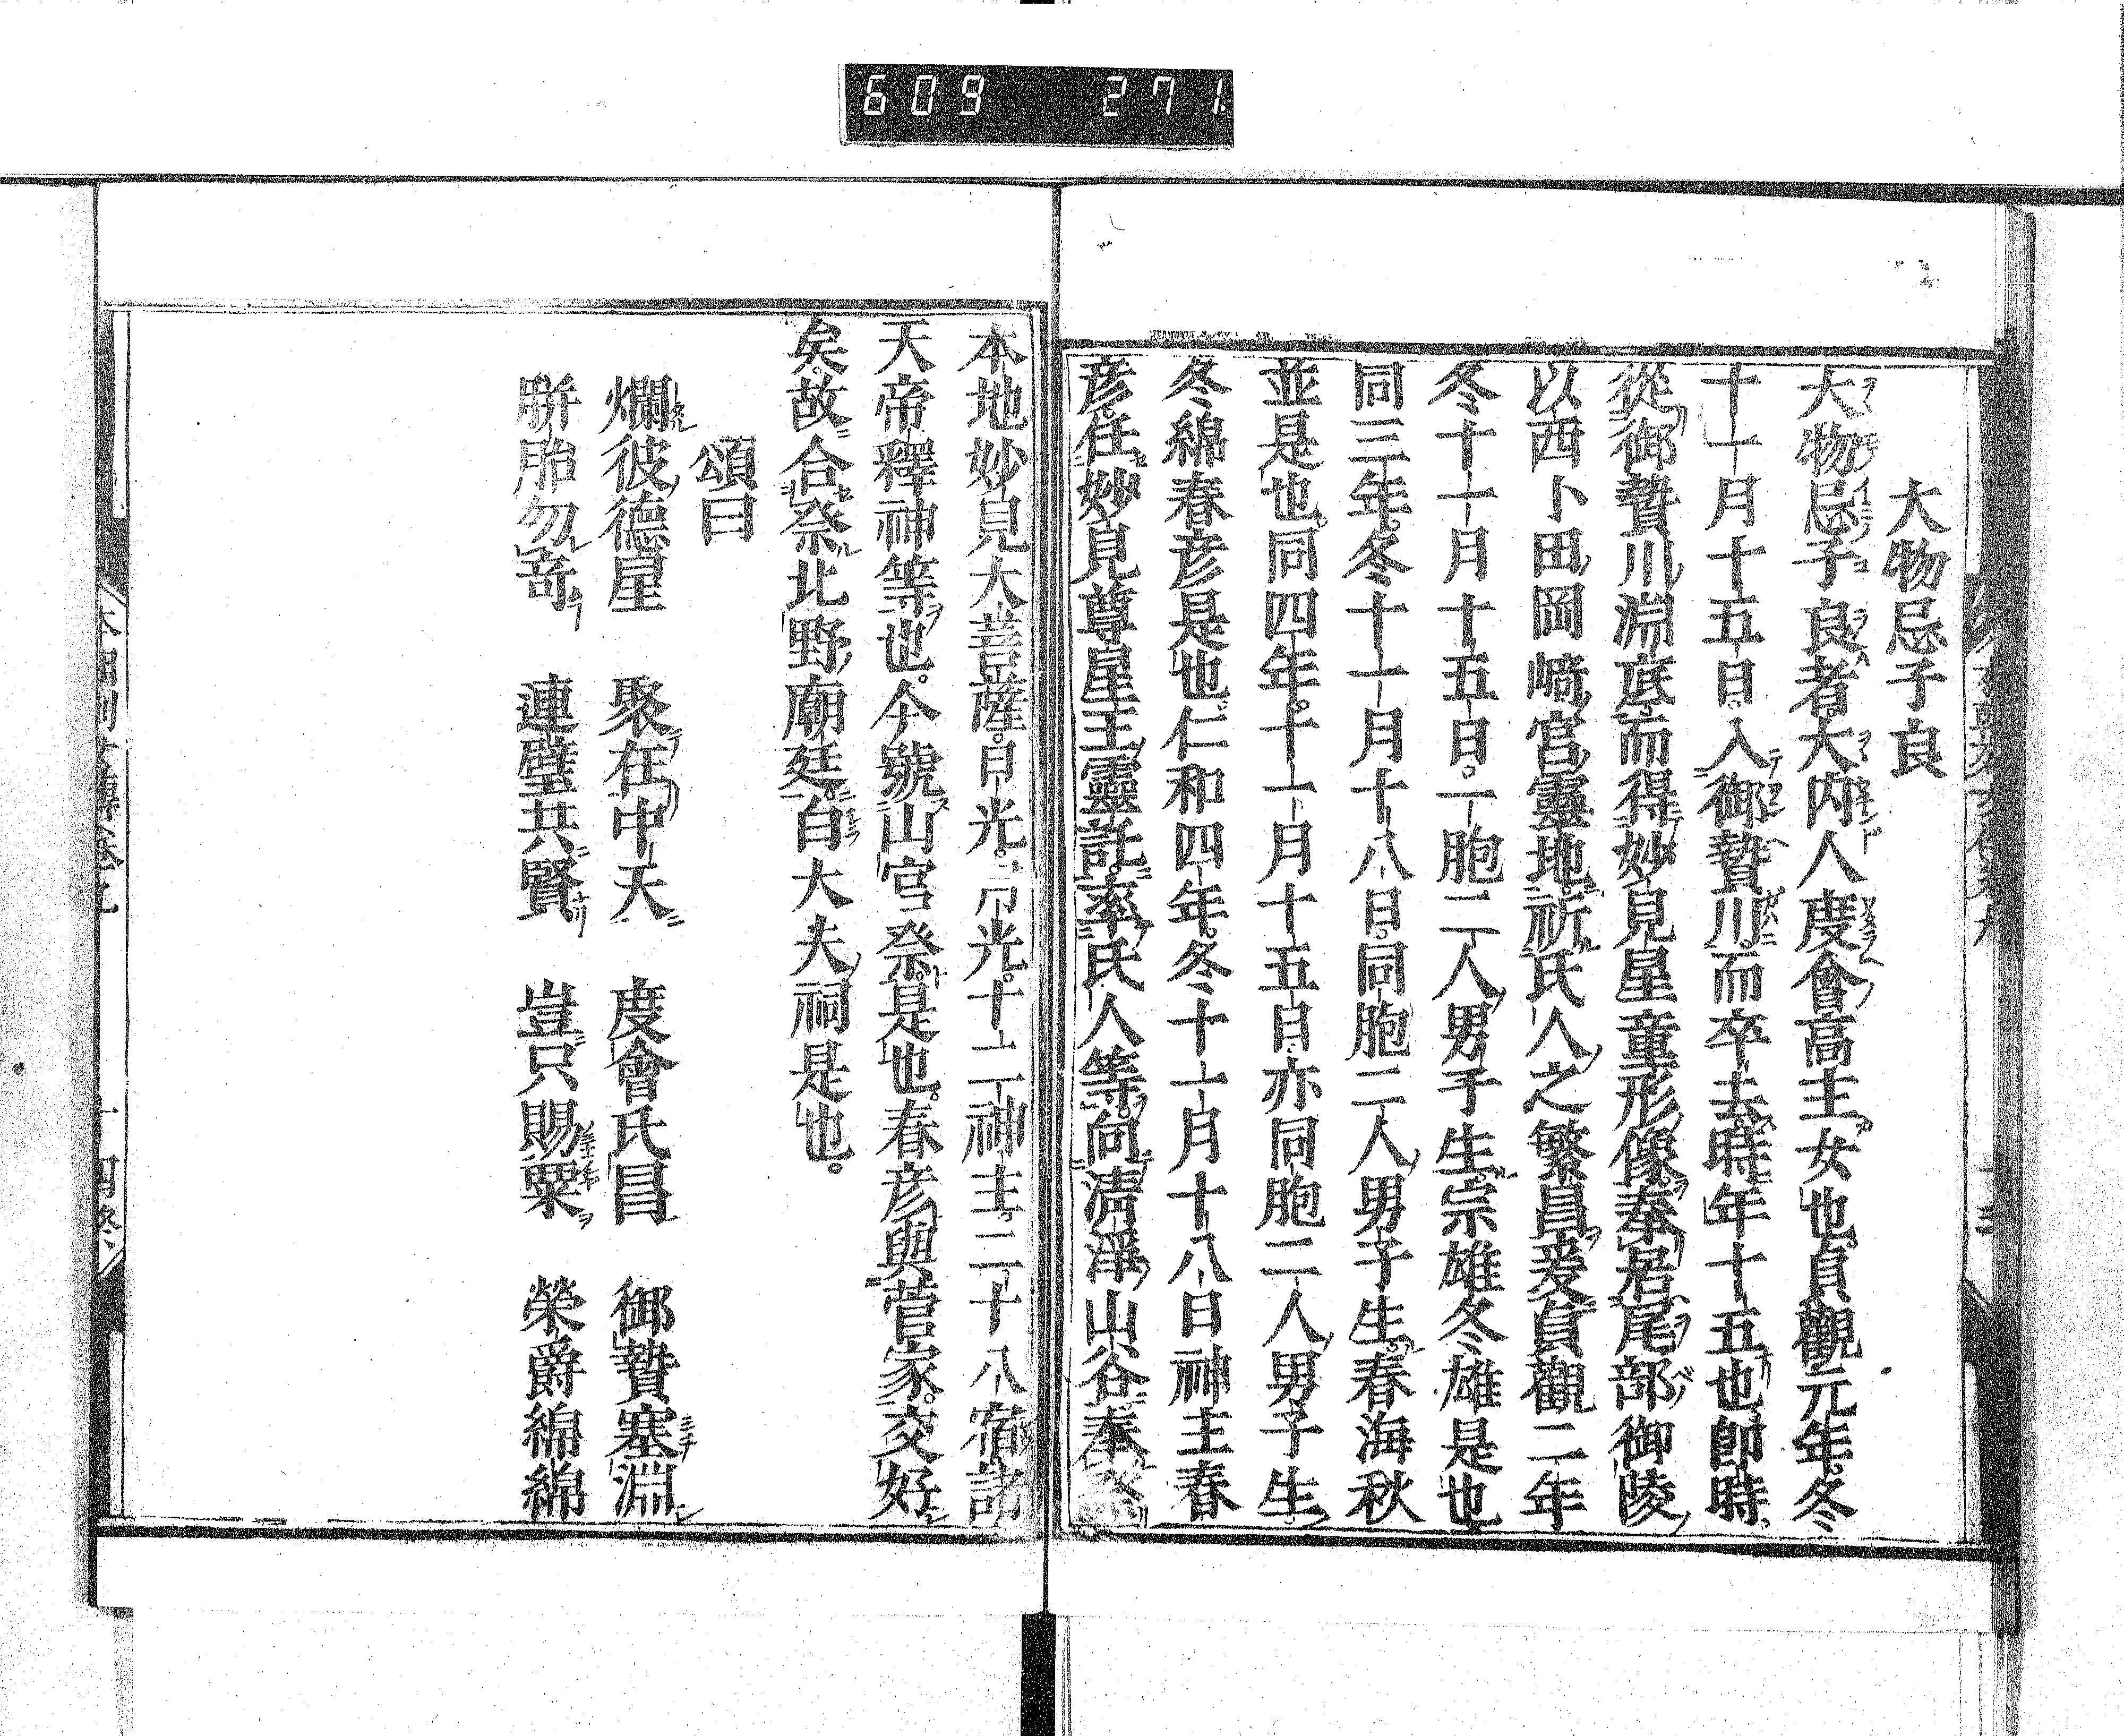 609 271
大物忌子良
大物忌子良者。大内人度會高主女也。貞觀元年。冬
十一月十五日。入御贄川。而卒去。時年十五也。卽時。
從御贄川淵底。而得妙見星童形像。奉居尾部御陵
以西卜田岡﨑宮靈地。祈氏人之繁昌。爰貞觀二年
冬十一月十五日。一胞二人男子生。宗雄冬雄是也
同三年。冬十一月十八日。同胞二人男子生。春海秋
並是也。同四年。十一月十五日。亦同胞二人男子生。
冬綿春彦是也。仁和四年。冬十一月十八日神主春
彦。任妙見尊星王靈託。率氏人等。向淸淨山谷奉祭
本地妙見大菩薩。日光。月光。十二神主。二十八宿諸
天帝釋神等也。今號山宮祭。是也。春彦與菅家。交好
矣。故合祭北野廟廷。白大夫祠是也。
頌曰
爛彼德星 聚在中天 度會氏昌 御贄塞淵
駢胎勿竒 連璧共賢 豈只賜粟 榮爵綿綿
本朝列女傳卷九 十四終